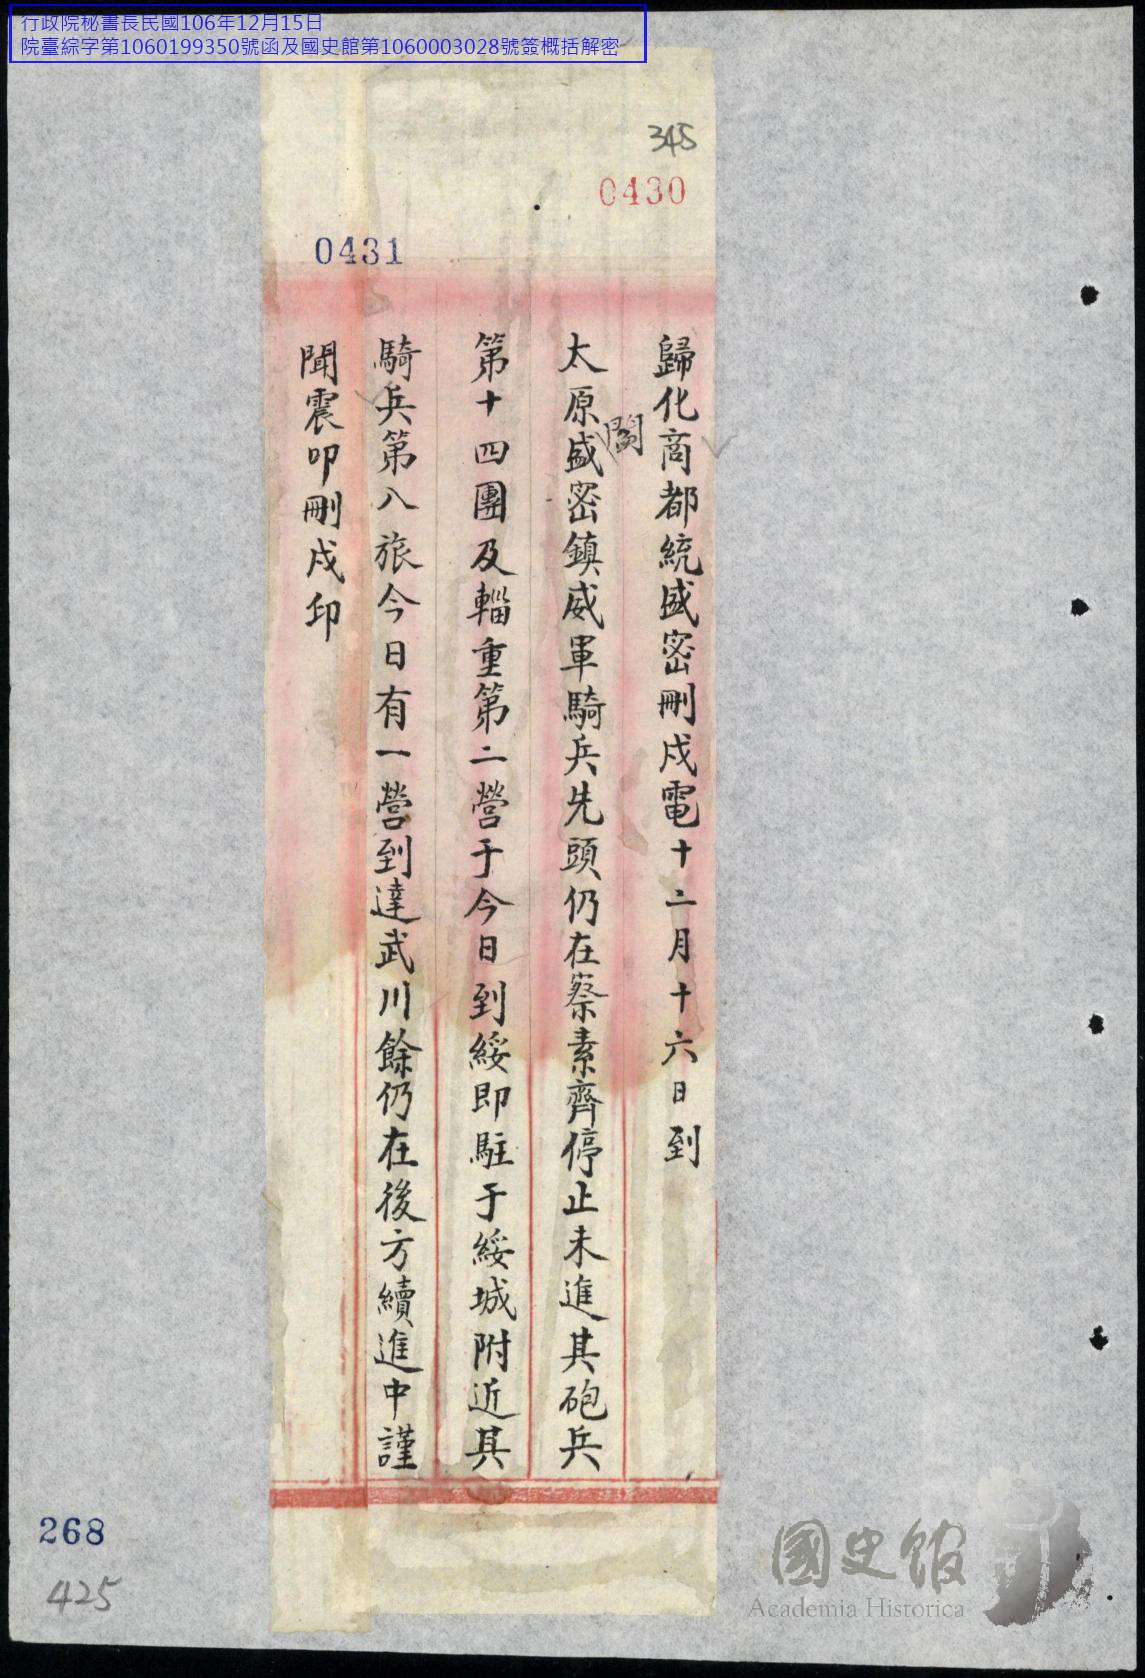 行政院秘書長民國106年12月15日
院臺綜字第1060199350號函及國史館第1060003028號簽概括解密
345
0430
0431
歸化商都統盛密刪戌電十二月十六日到
太原盛密鎮威軍騎兵先頭仍在察素齊停止未進其砲兵
閻
第十四團及輜重第二營于今日到綏即駐于綏城附近其
騎兵第八旅今日有一營到達武川餘仍在後方續進中謹
聞震叩刪戌印
268
425
國史館
Academia Historica